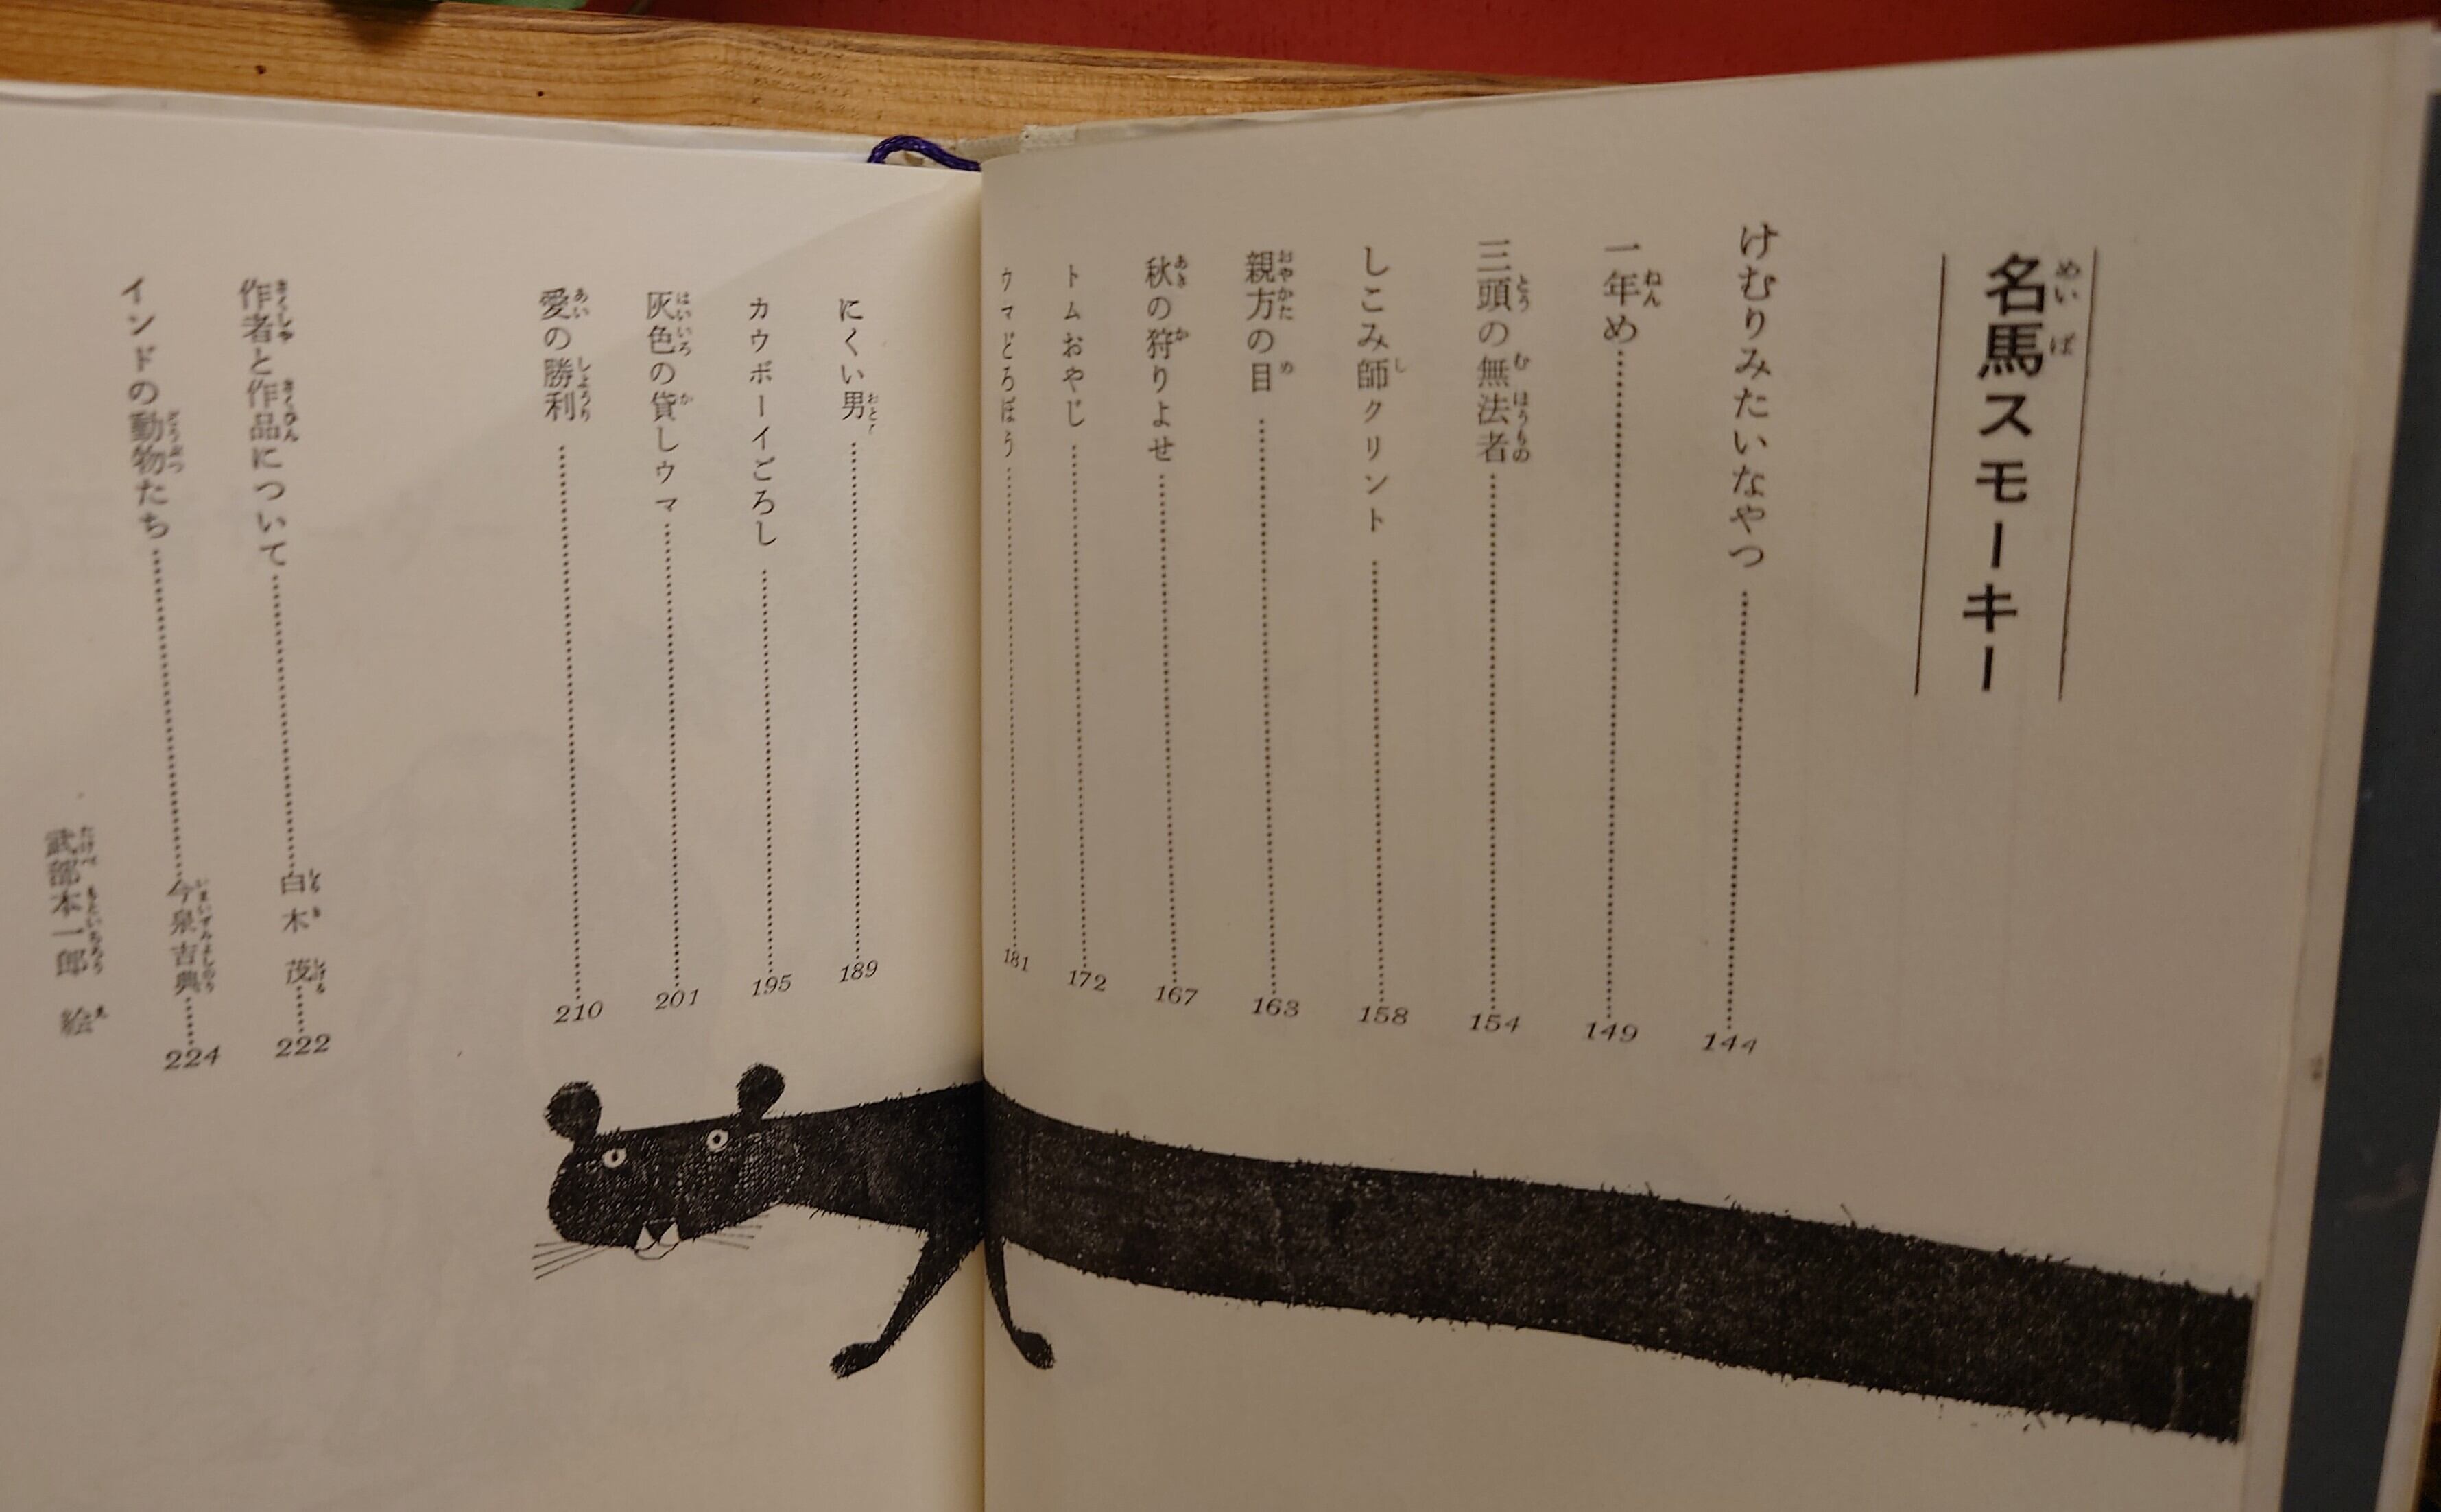 名馬スモーキー
けむりみたいなやつ……144
一年め……149
三頭の無法者……154
しこみ師クリント……158
親方の目……163
秋の狩りよせ……167
トムおやじ……172
ウマどろぼう……181
にくい男……189
カウボーイごろし……195
灰色の貸しウマ……201
愛の勝利……210
作者と作品について……白木 茂……222
インドの動物たち……今泉吉典……224
武部本一郎 絵